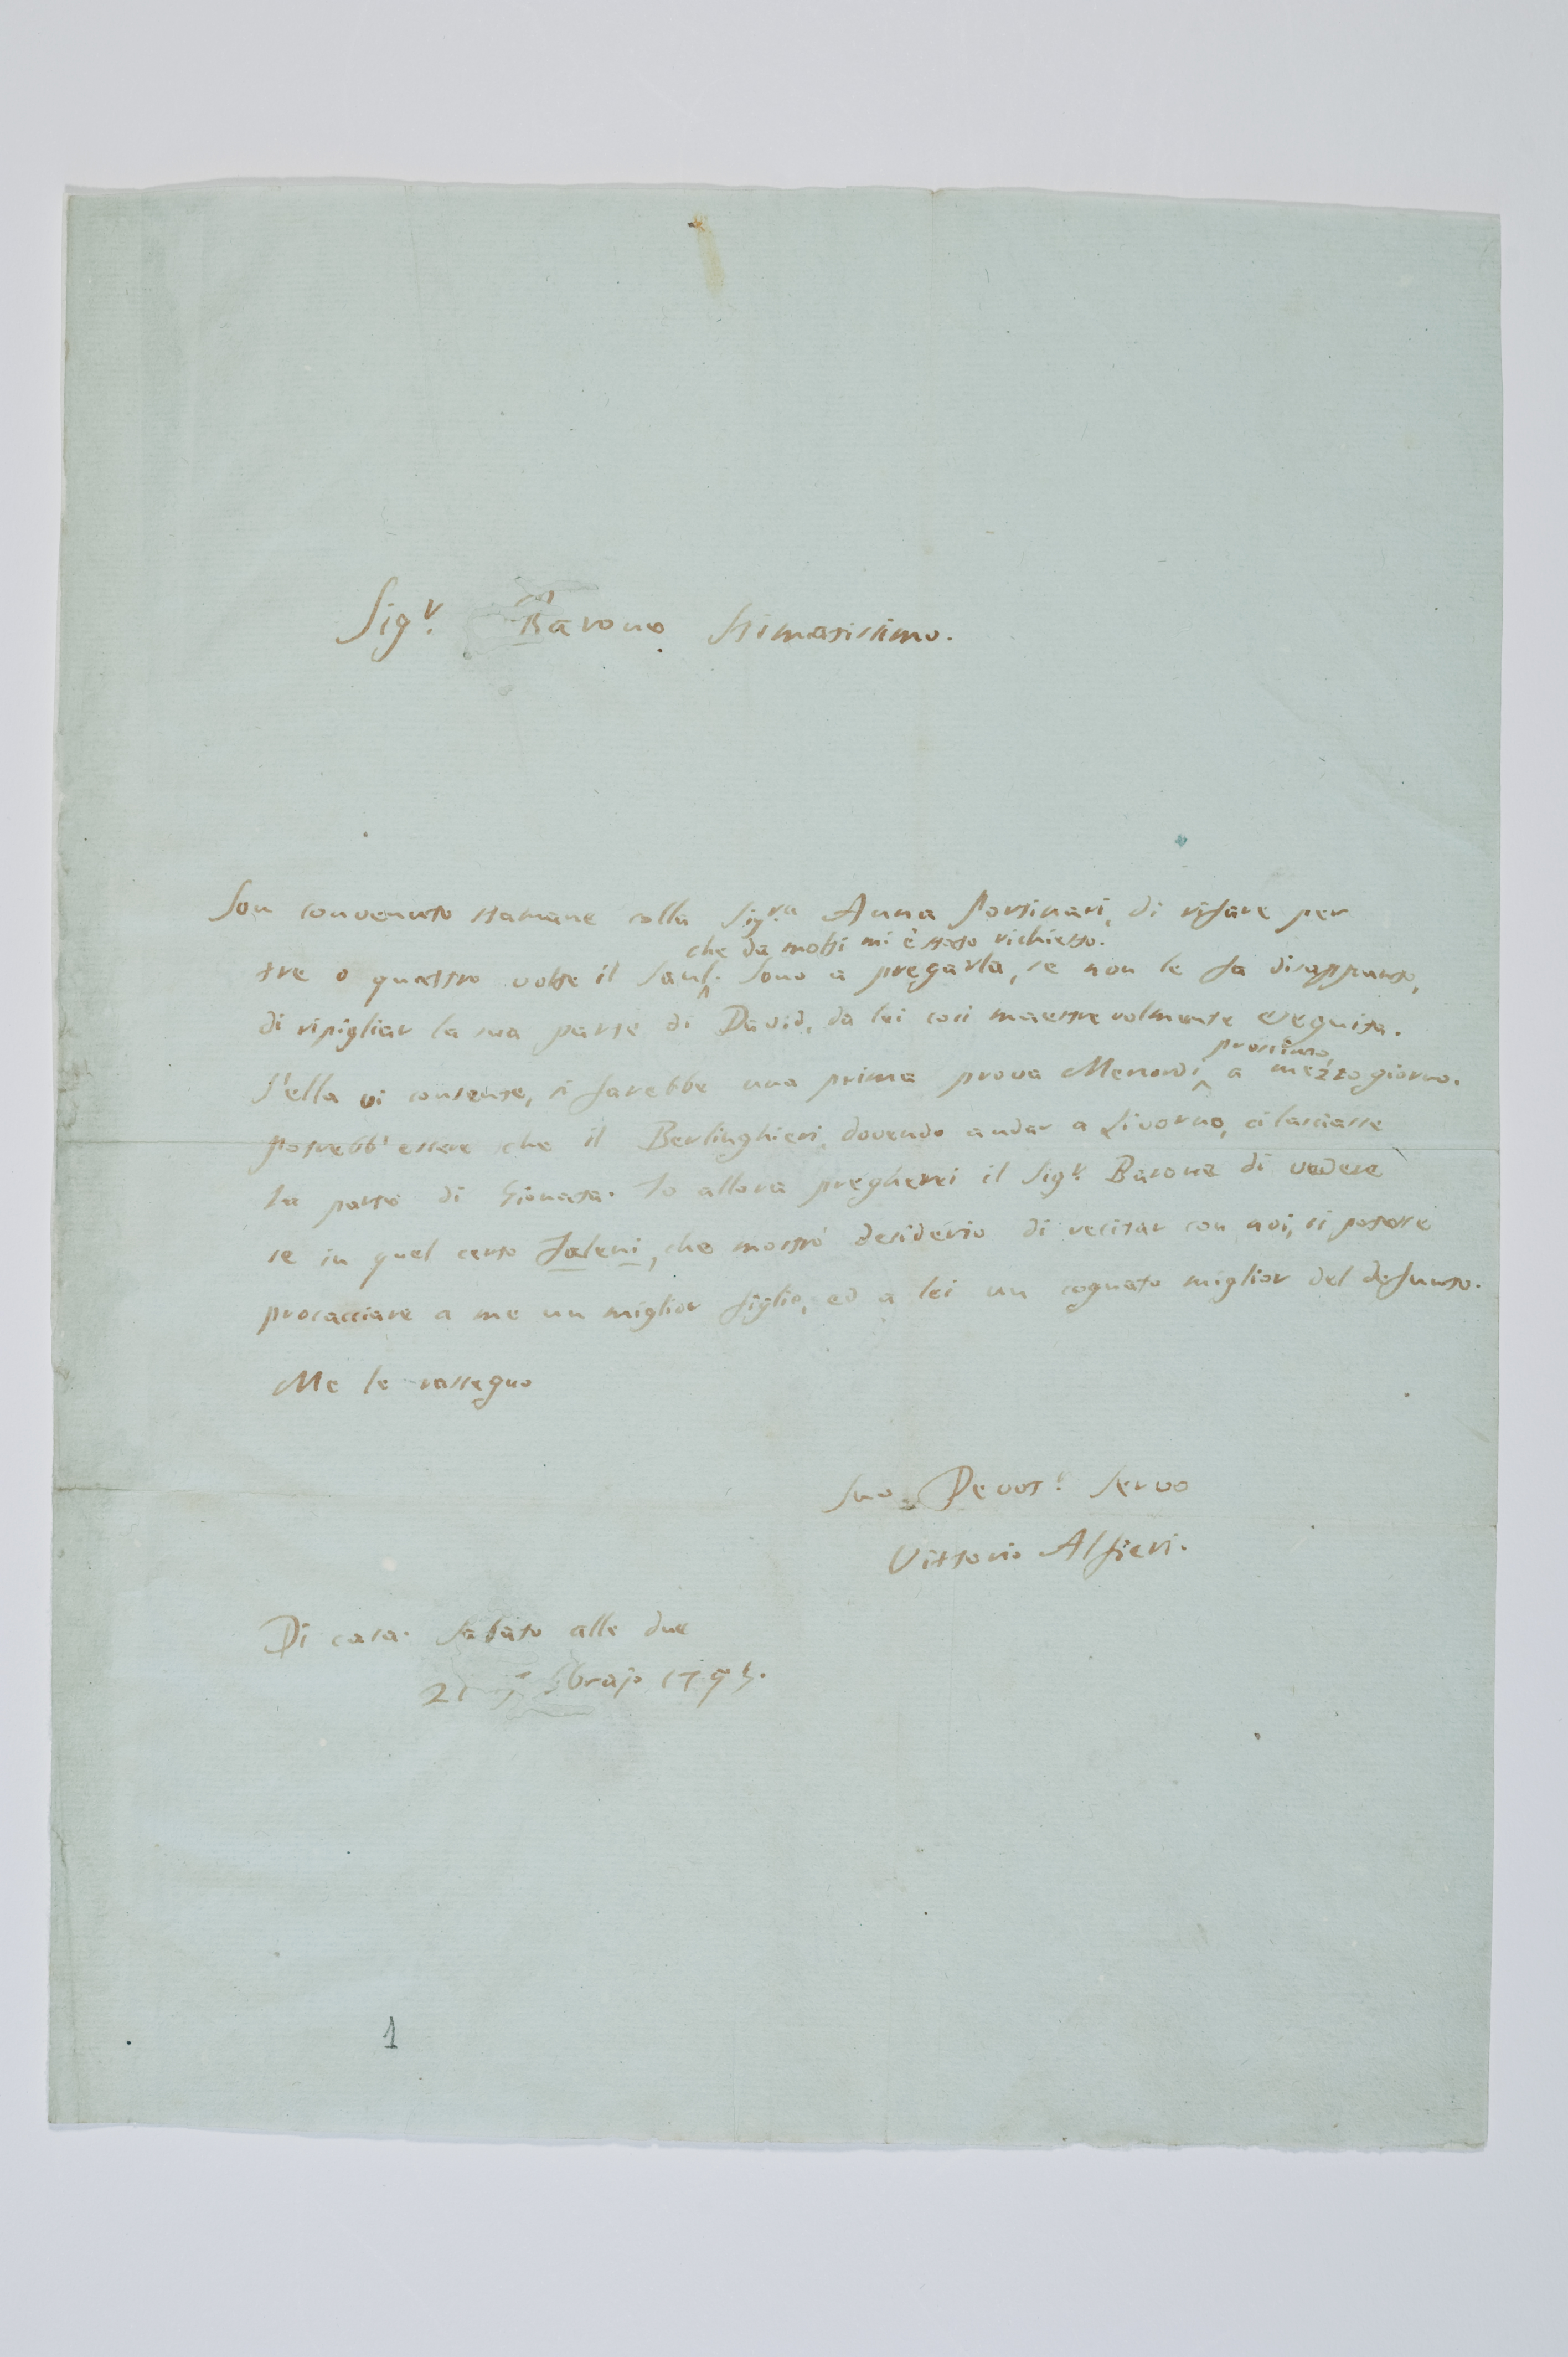 Sig.r Barone Stimatissimo.
Son convenuto stamane colla Sig.ra Anna Portinari, di rifare per
che da molti mi è stato richiesto.
tre o quattro volte il Saul. Sono a pregarla, se non le fa disappunto,
di ripigliar la sua parte di David, da lei così maestrevolmente eseguita.
prossimo,
S'ella vi consente, si farebbe una prima prova Menordì a mezzogiorno.
Potrebb' essere che il Berlinghieri, dovendo andar a Livorno, ci lasciasse
la parte di Gionata. Io allora pregherei il Sig.r Barone di vedere
se in quel certo Saleni, che mostrò desiderio di recitar con noi, si potesse
procacciare a me un miglior figlio, ed a lei un cognato miglior del defunto.
Me le rassegno
Suo Devot.o Servo
Vittorio Alfieri.
Di casa. Sabato alle due
21
1